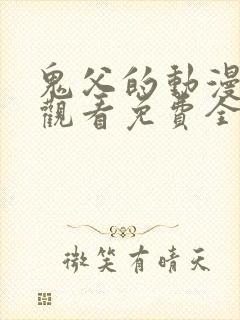 鬼父的動漫
觀看免費全
微笑有晴天